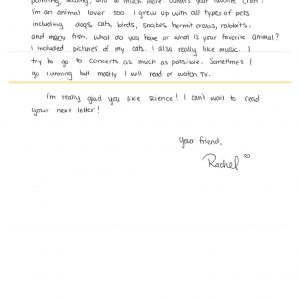 painting, sewing, and so much more. What's your favorite craft?
I'm an animal lover too. I grew up with all types of pets
including dogs, cats, birds, snakes, hermit crabs, rabbits,
and many fish. What do you have or what is your favorite animal?
I included pictures of my cats. I also really like music. I
try to go to concerts as much as possible. Sometimes I
go running but mostly I will read or watch TV.
I'm really glad you like science! I can't wait to read
your next letter!
Your friend,
Rachel